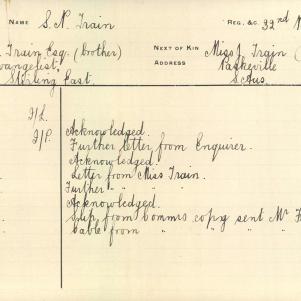 NAME S. N. Train REG. &c. 32nd
Train Esq. (brother) NEXT OF KIN Miss J. Train (
vangelist ADDRESS Paskeville
Stirling East. S. Aus.
I/L.
I/P. Acknowledged.
Further letter from Enquirer.
Acknowledged.
Letter from Miss Train.
Further " "
Acknowledged.
Slip from Commrs copy sent Mr
Cable from " " "